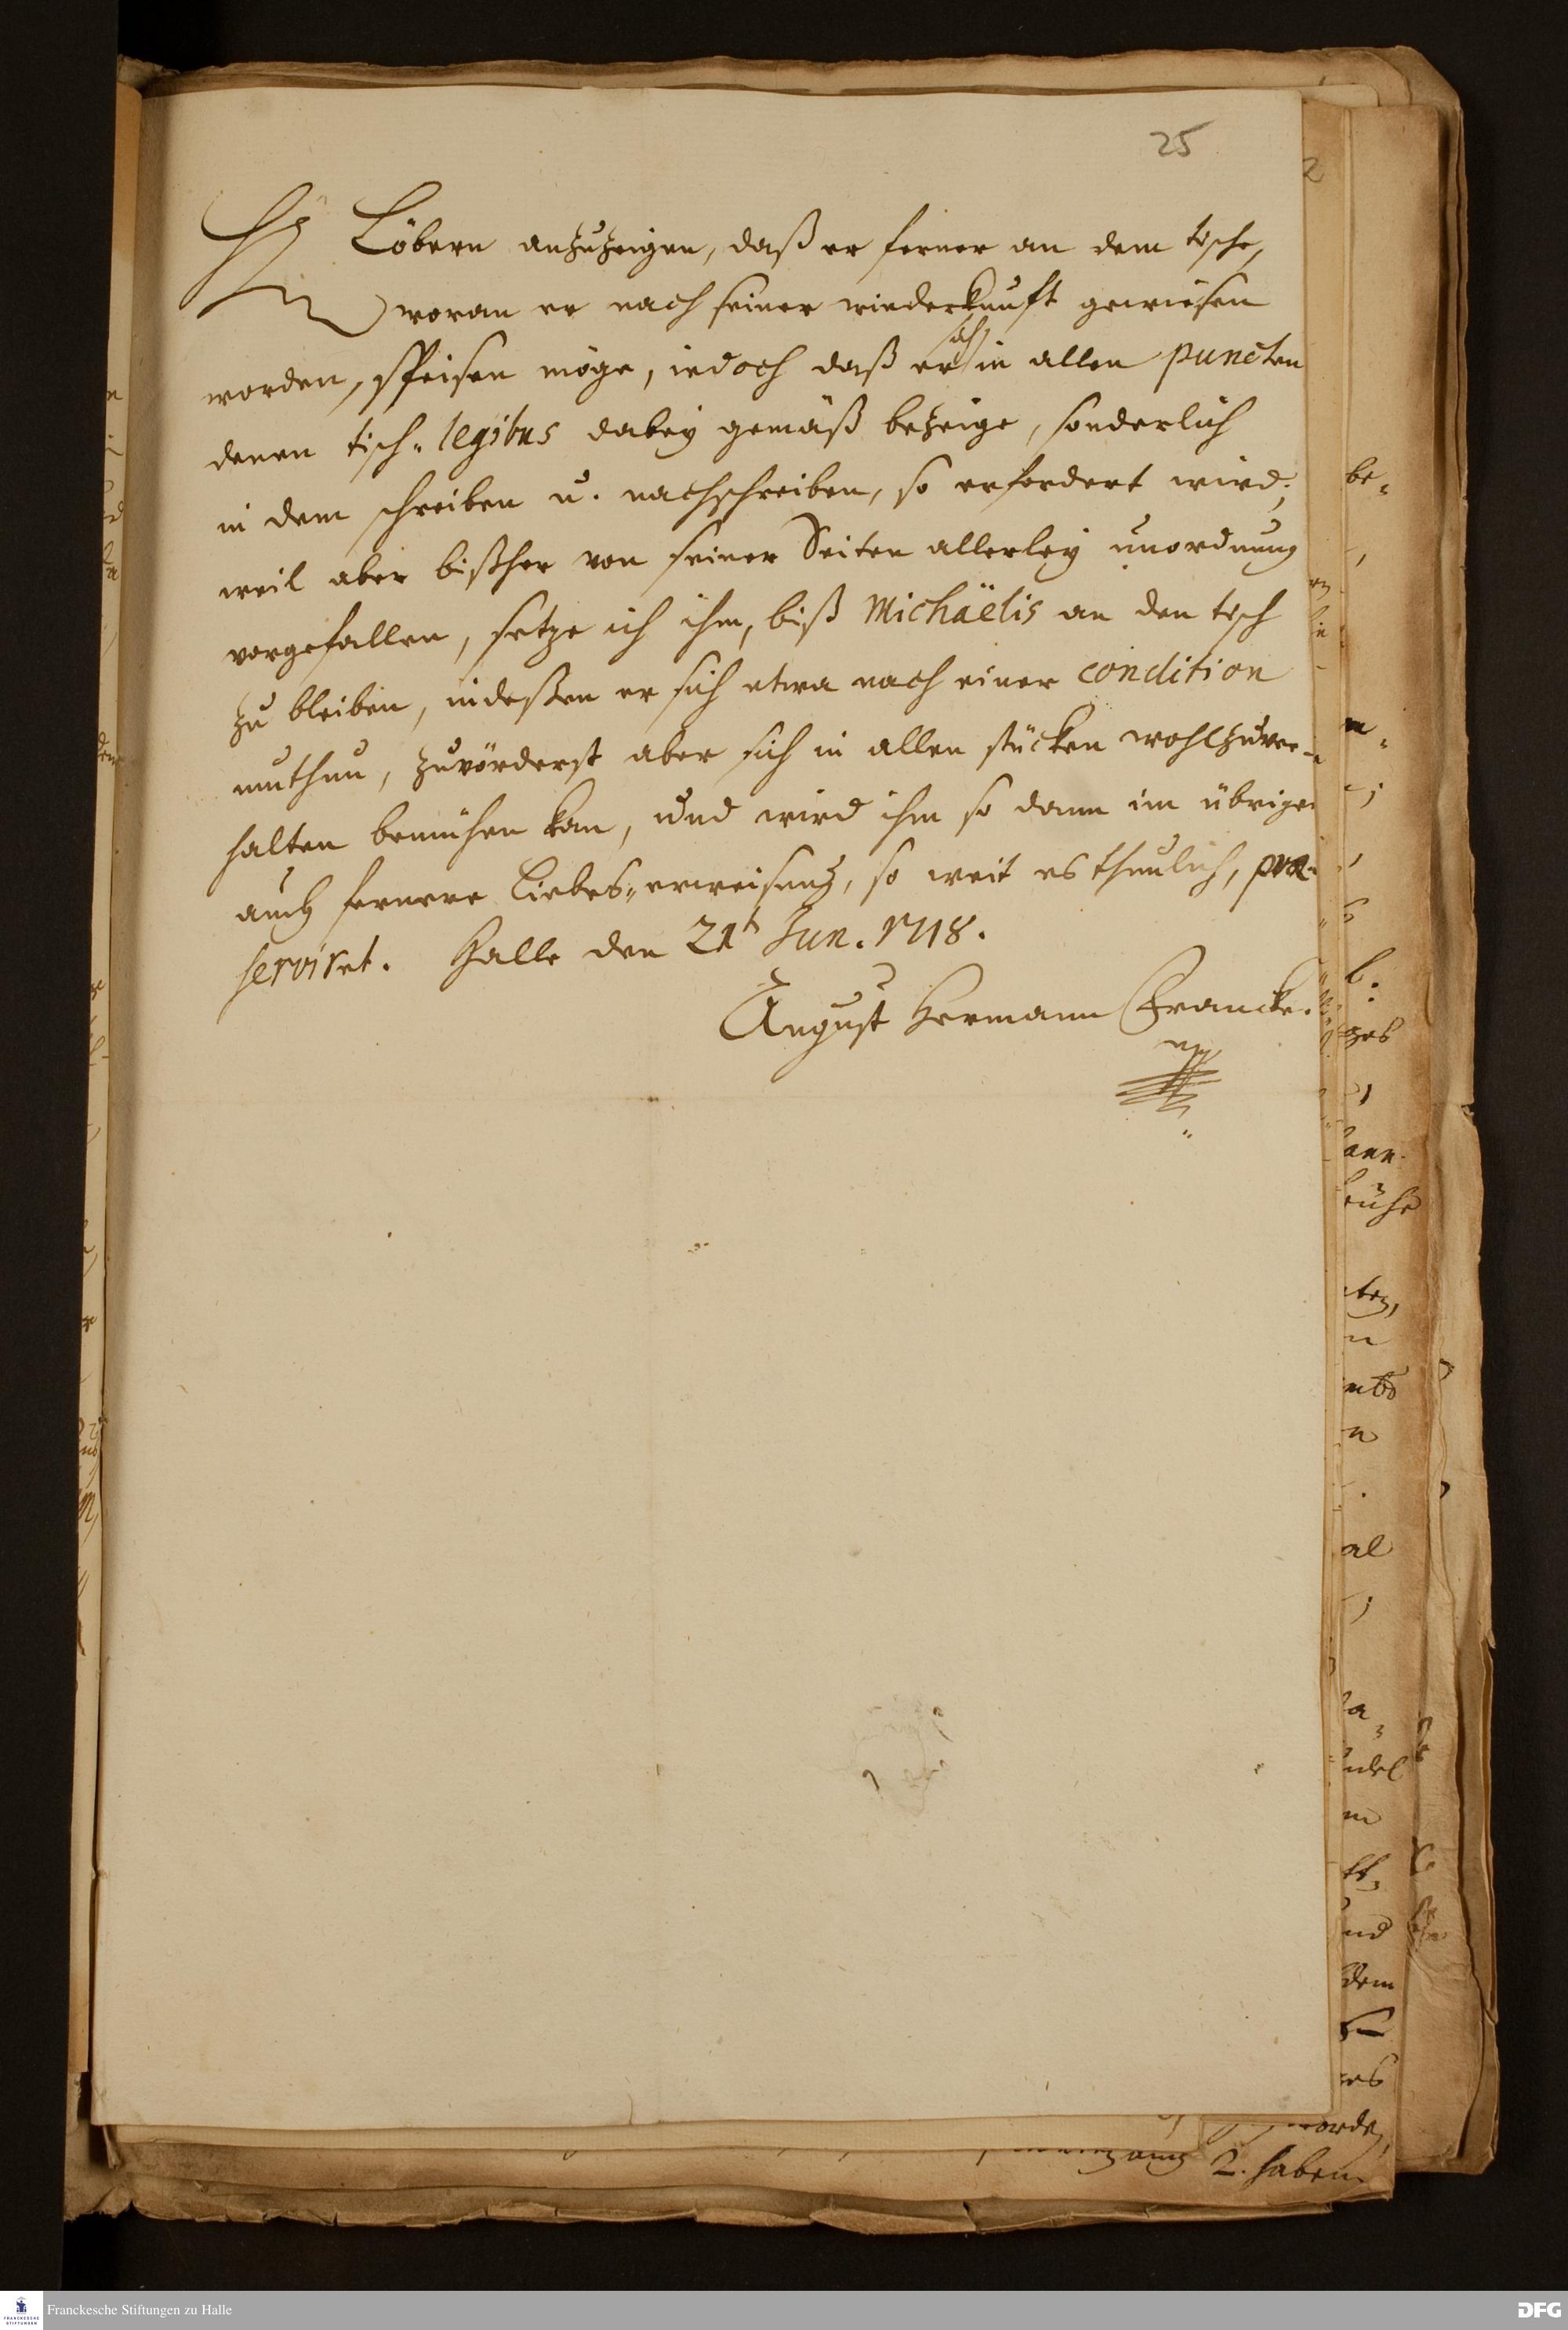 25
Hr. Löbern anzuzeigen, daß er ferner an dem tische,
woran er nach seiner wiederkunft gewiesen
worden, speisen möge, iedoch daß er sich in allen puncten
denen tisch-legibus dabey gemäß bezeige, sonderlich
in dem schreiben u. nachschreiben, so erfordert wird;
weil aber bißher von seiner Seiten allerley unordnung
vorgefallen, setze ich ihm, biß Michäelis an den tisch
zu bleiben, indeßen er sich etwa nach einer condition
umthun, zuvörderst aber sich in allen stücken wohlzuver-
halten bemühen kan, und wird ihm so dann im übrigen
auch fernere Liebes-erweisung, so weit es thunlich, præ-
serviret. Halle den 21t Jun. 1718.
August Hermann Francke.
2. haben
Franckesche Stiftungen zu Halle
DFG